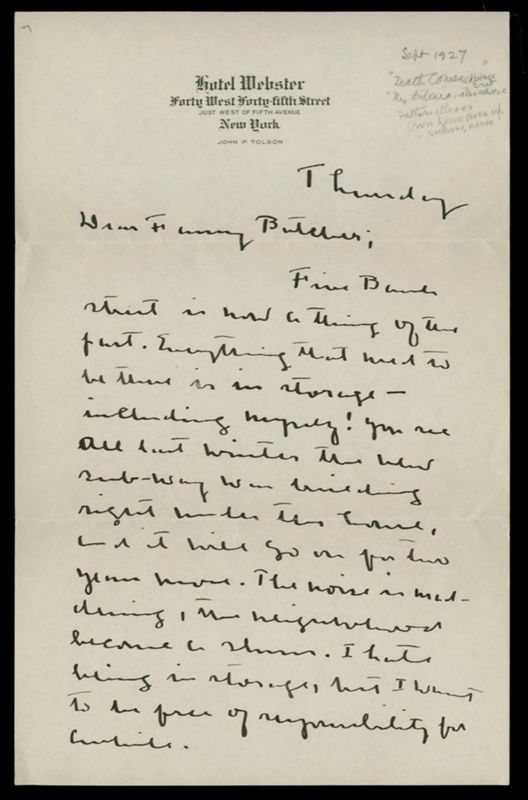 Sept 1927
"Death Comes
"My Antonia,
Father's illness
own home given up
- subway noise
Hotel Webster
Forty West Forty-fifth Street
JUST WEST OF FIFTH AVENUE
New York
JOHN P. TOLSON
Thursday
Dear Fanny Butcher;
Five Bank
street is now a thing of the
past. Everything that used to
be there is in storage —
including myself! You see
all last winter the new
sub-way was building
right under this house,
and it will go on for two
years more. The noise is mad-
dening, the neighborhood
become a slum. I hate
being in storage, but I want
to be free of responsibility for
awhile.